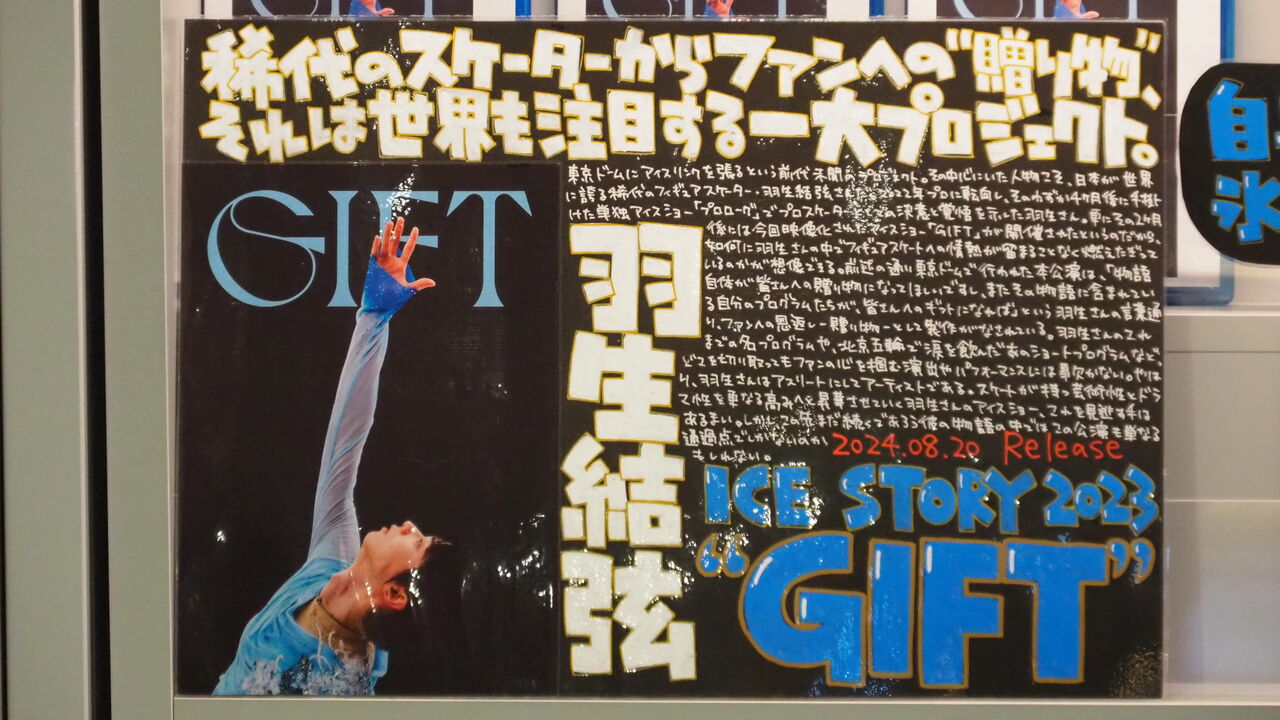 稀代のスケーターからファンへの“贈り物”、
それは世界も注目する一大プロジェクト。
GIFT
羽生結弦
東京ドームにアイスリンクを張るという前代未聞のプロジェクト。その中心にいた人物こそ、日本が世界
に誇る稀代のフィギュアスケーター・羽生結弦さんだ。2022年プロに転向し、そのわずか4ヶ月後に手掛
けた単独アイスショー「プロローグ」でプロスケーターとしての決意と覚悟を示した羽生さん。更にその2ヶ月
後には今回映像化されたアイスショー「GIFT」が開催されたというのだから、
如何に羽生さんの中でフィギュアスケートへの情熱が留まることなく燃えたぎって
いるのかが想像できる。前述の通り東京ドームで行われた本公演は、「物語
自体が皆さんへの贈り物になってほしいですし、またその物語に含まれてい
る自分のプログラムたちが、皆さんへのギフトになれば」という羽生さんの言葉通
り、ファンへの恩返し=贈り物=として製作がなされている。羽生さんのこれ
までの名プログラムや、北京五輪で涙を飲んだあのショートプログラムなど、
どこを切り取ってもファンの心を掴む演出やパフォーマンスには事欠かない。やは
り、羽生さんはアスリートにしてアーティストである。スケートが持つ芸術性とドラ
マ性を更なる高みへと昇華させていく羽生さんのアイスショー、これを見逃す手は
あるまい。しかしこの先まだ続くであろう彼の物語の中ではこの公演も単なる
通過点でしかないのか
もしれない。
2024.08.20 Release
ICE STORY 2023
“GIFT”
自
氷